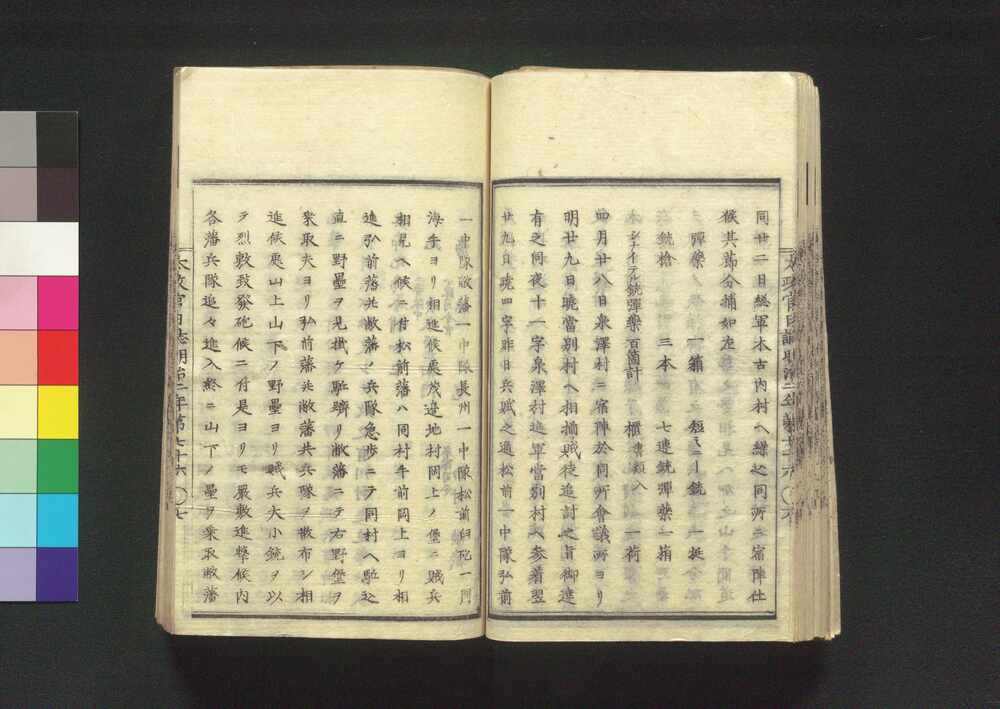 同廿二日總軍木古内村ヘ繰込同所ニ宿陣仕
候其節分捕如左
彈藥 一箱 短ミニー銃 一挺
銃槍 三本 七連銃彈藥 二箱
シナイテル銃彈藥百箇計 一櫃 一荷
四月廿八日泉澤村ニ宿陣於同所會議所ヨリ
明廿九日曉當別村ヘ相揃賊徒追討之旨御達
有之同夜十一字泉澤村進軍當別村ヘ參着翌
廿九日曉四字昨日兵賦之通松前一中隊弘前
太政官日誌明治二年第七十六 〇六
一中隊敝藩一中隊長州一中隊松前臼砲一門
海手ヨリ相進候處茂邊地村岡上ノ堡ニ賊兵
相見ヘ候ニ付松前藩ハ同村手前岡上ヨリ相
進弘前藩共敝藩ノ兵隊急歩ニテ同村ヘ駈込
直ニ野壘ヲ見掛ケ駈躋リ敝藩ニテ右野堡ヲ
乘取夫ヨリ弘前藩共敝藩共兵隊ヲ散布シ相
進候處山上山下ノ野壘ヨリ賊兵大小銃ヲ以
テ烈敷致發砲候ニ付是ヨリモ嚴敷進撃候内
各藩兵隊追々進入終ニ山下ノ壘ヲ乘取敝藩
太政官日誌明治二年第七十六 〇七